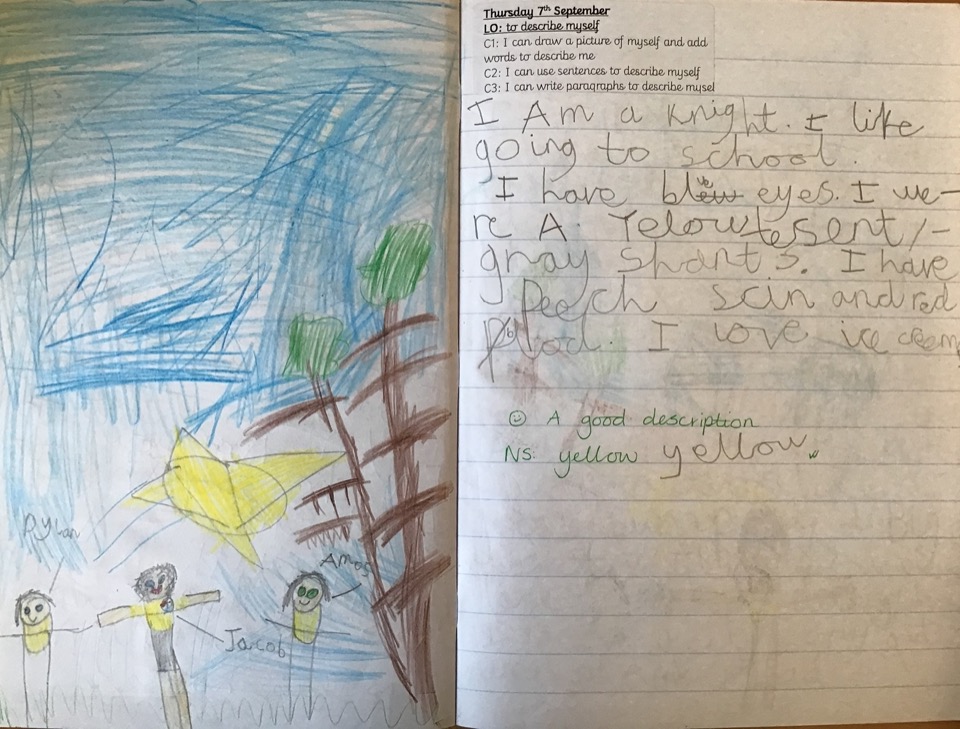 Dylan
Amos
Jacob
Thursday 7th September
LO: to describe myself
C1: I can draw a picture of myself and add
words to describe me
C2: I can use sentences to describe myself
C3: I can write paragraphs to describe mysel
I Am a Knight. I like
going to school.
I have blew eyes. I we-
re A. Yelow te sert /-
gray shorts. I have
Peach scin and red
blod. I love ice cream
☺ A good description
NS: yellow yellow